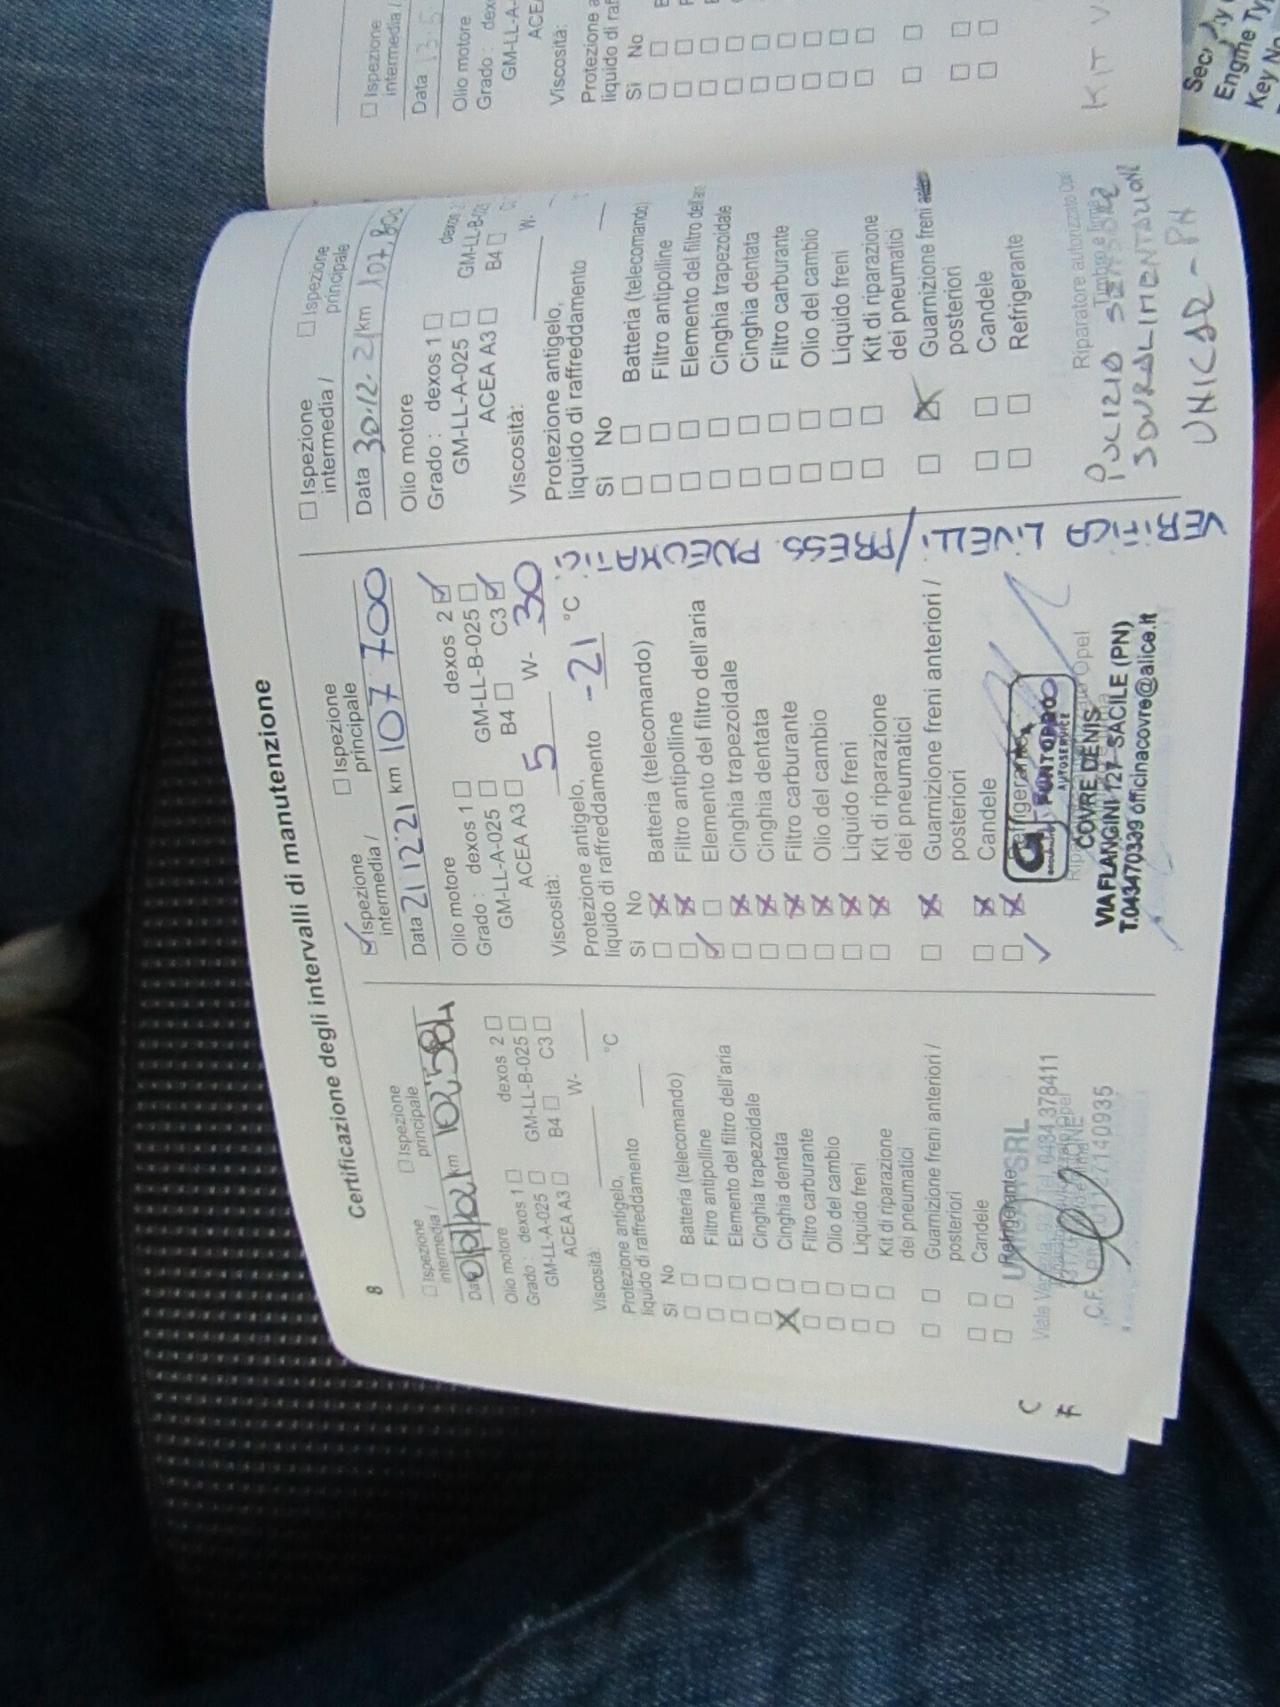 8
Certificazione degli intervalli di manutenzione
Ispezione
intermedia /
Ispezione
principale
km 102584
Olio motore
Grado : dexos 1 dexos 2
GM-LL-A-025 GM-LL-B-025
ACEA A3 B4 C3
Viscosità: W-
Protezione antigelo,
liquido di raffreddamento °C
Sì No
Batteria (telecomando)
Filtro antipolline
Elemento del filtro dell'aria
Cinghia trapezoidale
Cinghia dentata
Filtro carburante
Olio del cambio
Liquido freni
Kit di riparazione
dei pneumatici
Guarnizione freni anteriori /
posteriori
Candele
Refrigerante
SRL
0434 378411
C.F.
C
F
Ispezione
intermedia /
Ispezione
principale
Data 21 12 21 km 107 700
Olio motore
Grado : dexos 1 dexos 2
GM-LL-A-025 GM-LL-B-025
ACEA A3 B4 C3
Viscosità: 5 W- 30
Protezione antigelo,
liquido di raffreddamento -21 °C
Sì No
Batteria (telecomando)
Filtro antipolline
Elemento del filtro dell'aria
Cinghia trapezoidale
Cinghia dentata
Filtro carburante
Olio del cambio
Liquido freni
Kit di riparazione
dei pneumatici
Guarnizione freni anteriori /
posteriori
Candele
PUNTOPRO
AUTOSERVICE
COVRE DENIS
VIA FLANGINI 127 - SACILE (PN)
T.043470339 officinacovre@alice.it
VERIFICA LIVELLI / PRESS. PNEUMATICI
Ispezione
intermedia /
Ispezione
principale
Data 30.12.21 km 107.800
Olio motore
Grado : dexos 1 dexos 2
GM-LL-A-025 GM-LL-B-025
ACEA A3 B4
Viscosità: W-
Protezione antigelo,
liquido di raffreddamento
Sì No
Batteria (telecomando)
Filtro antipolline
Elemento del filtro dell'aria
Cinghia trapezoidale
Cinghia dentata
Filtro carburante
Olio del cambio
Liquido freni
Kit di riparazione
dei pneumatici
Guarnizione freni
posteriori
Candele
Refrigerante
Riparatore autorizzato Opel
Timbro e firma
PULIZIA SENSORE
SOVRALIMENTAZIONE
UNICAR - PN
Ispezione
intermedia /
Data
Olio motore
Grado :
GM-LL-A-
Viscosità:
Sì No
KIT
Key No